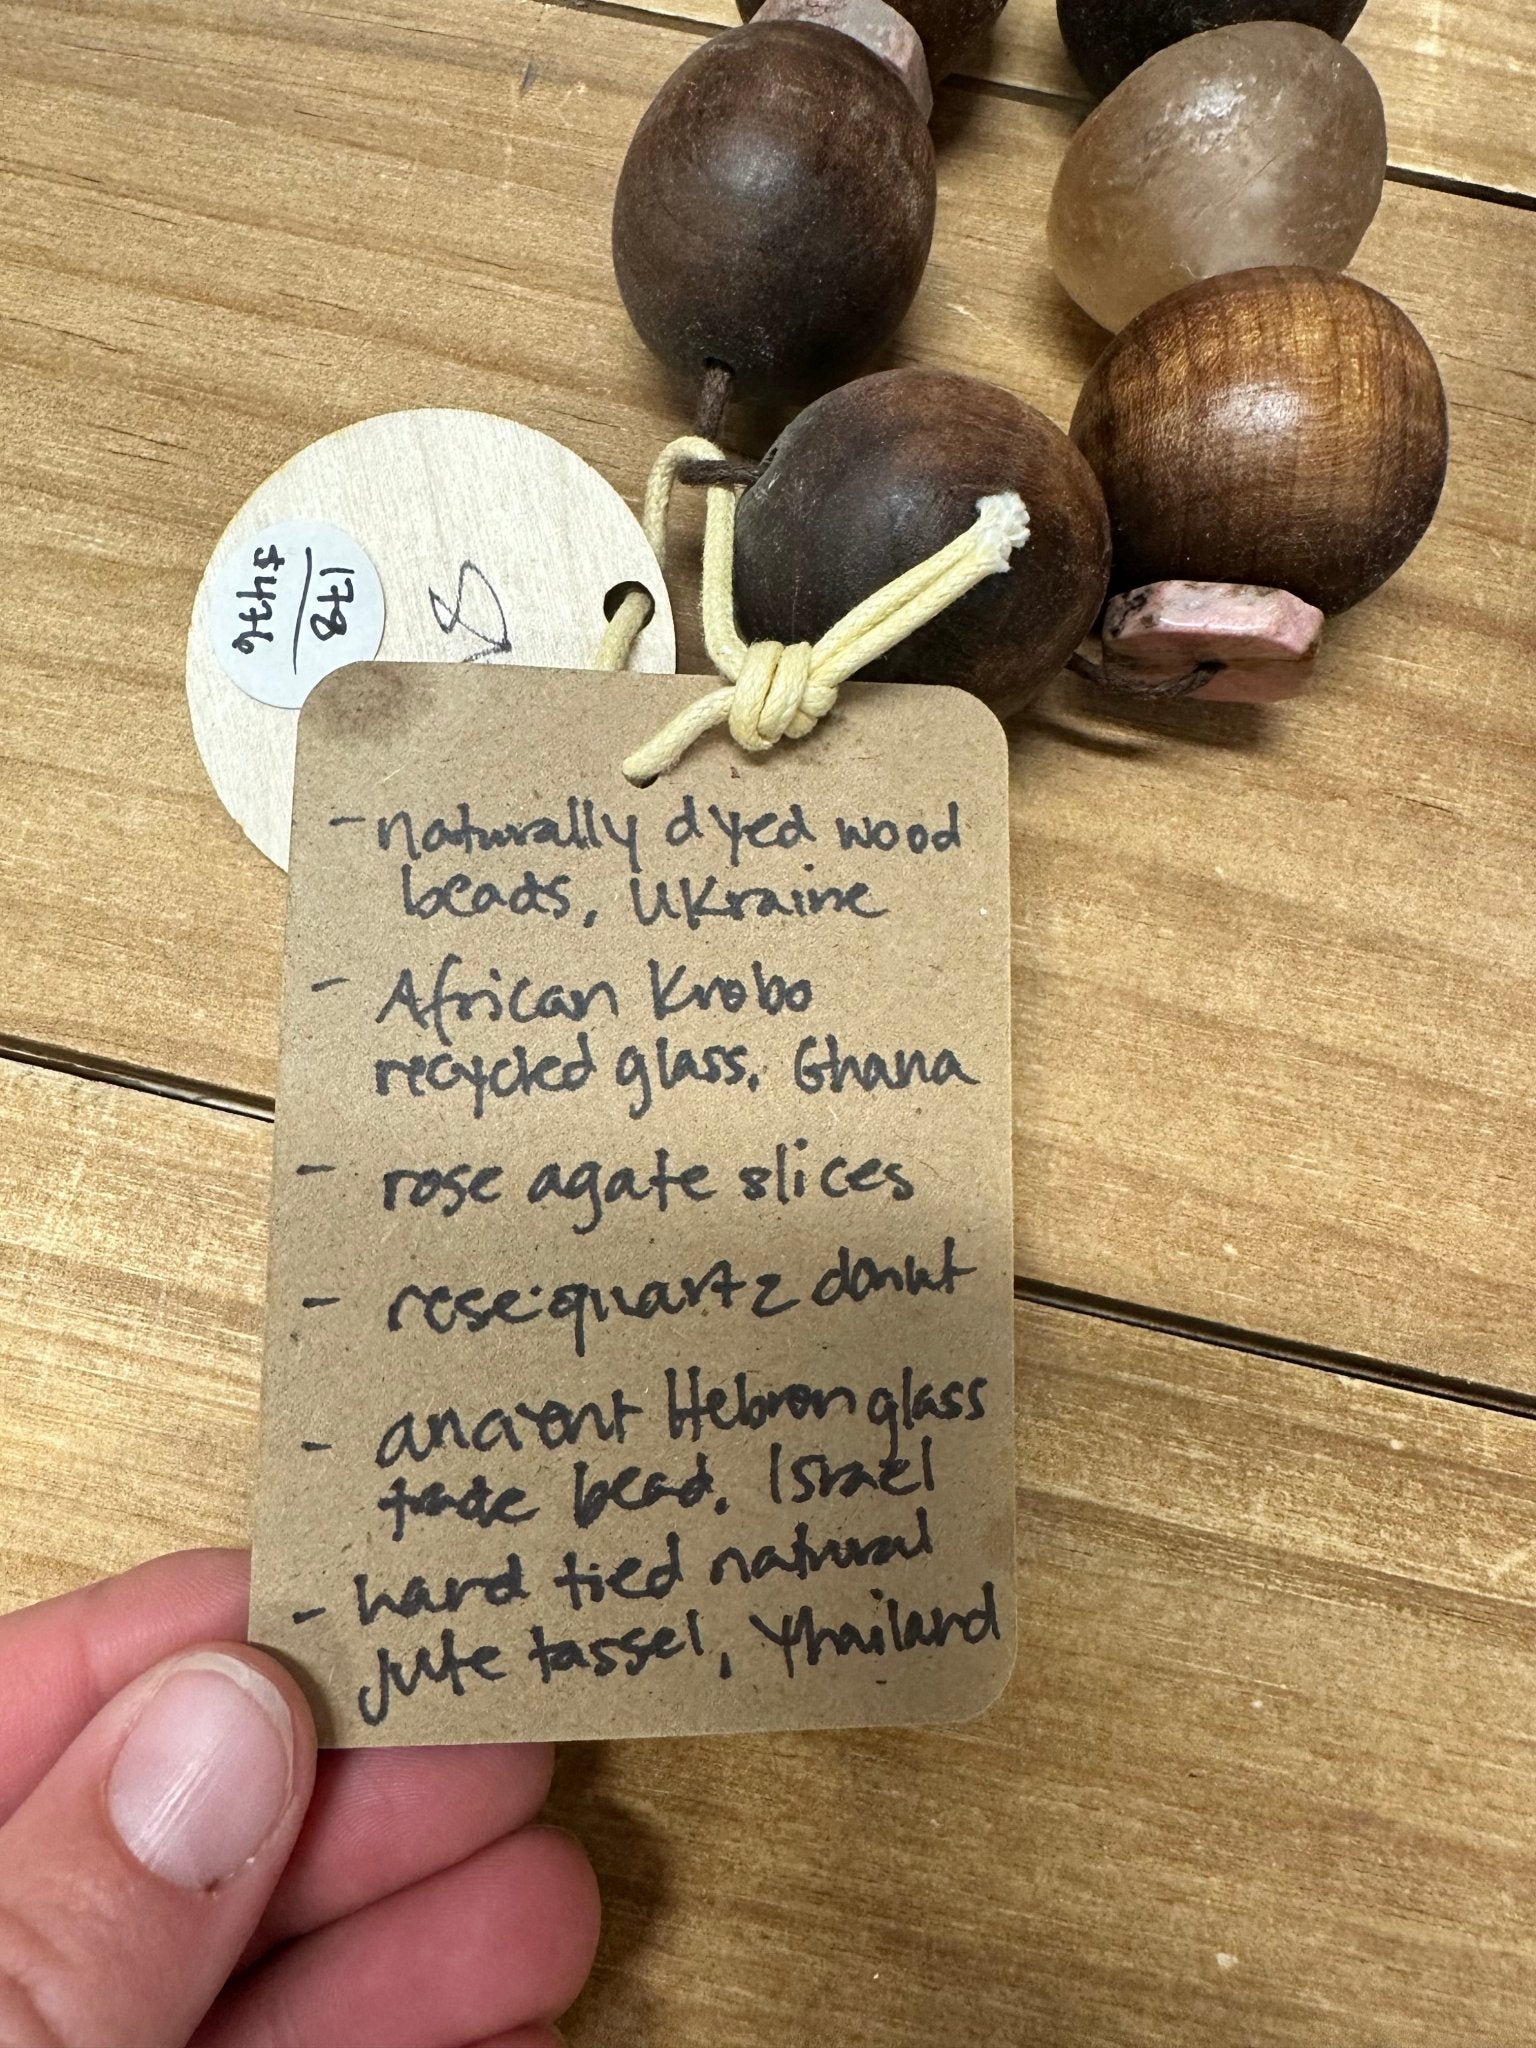 178
$476
- naturally dyed wood
beads, Ukraine
- African Krobo
recycled glass, Ghana
- rose agate slices
- rose quartz donut
- ancient Hebron glass
trade bead, Israel
- hand tied natural
jute tassel, Thailand